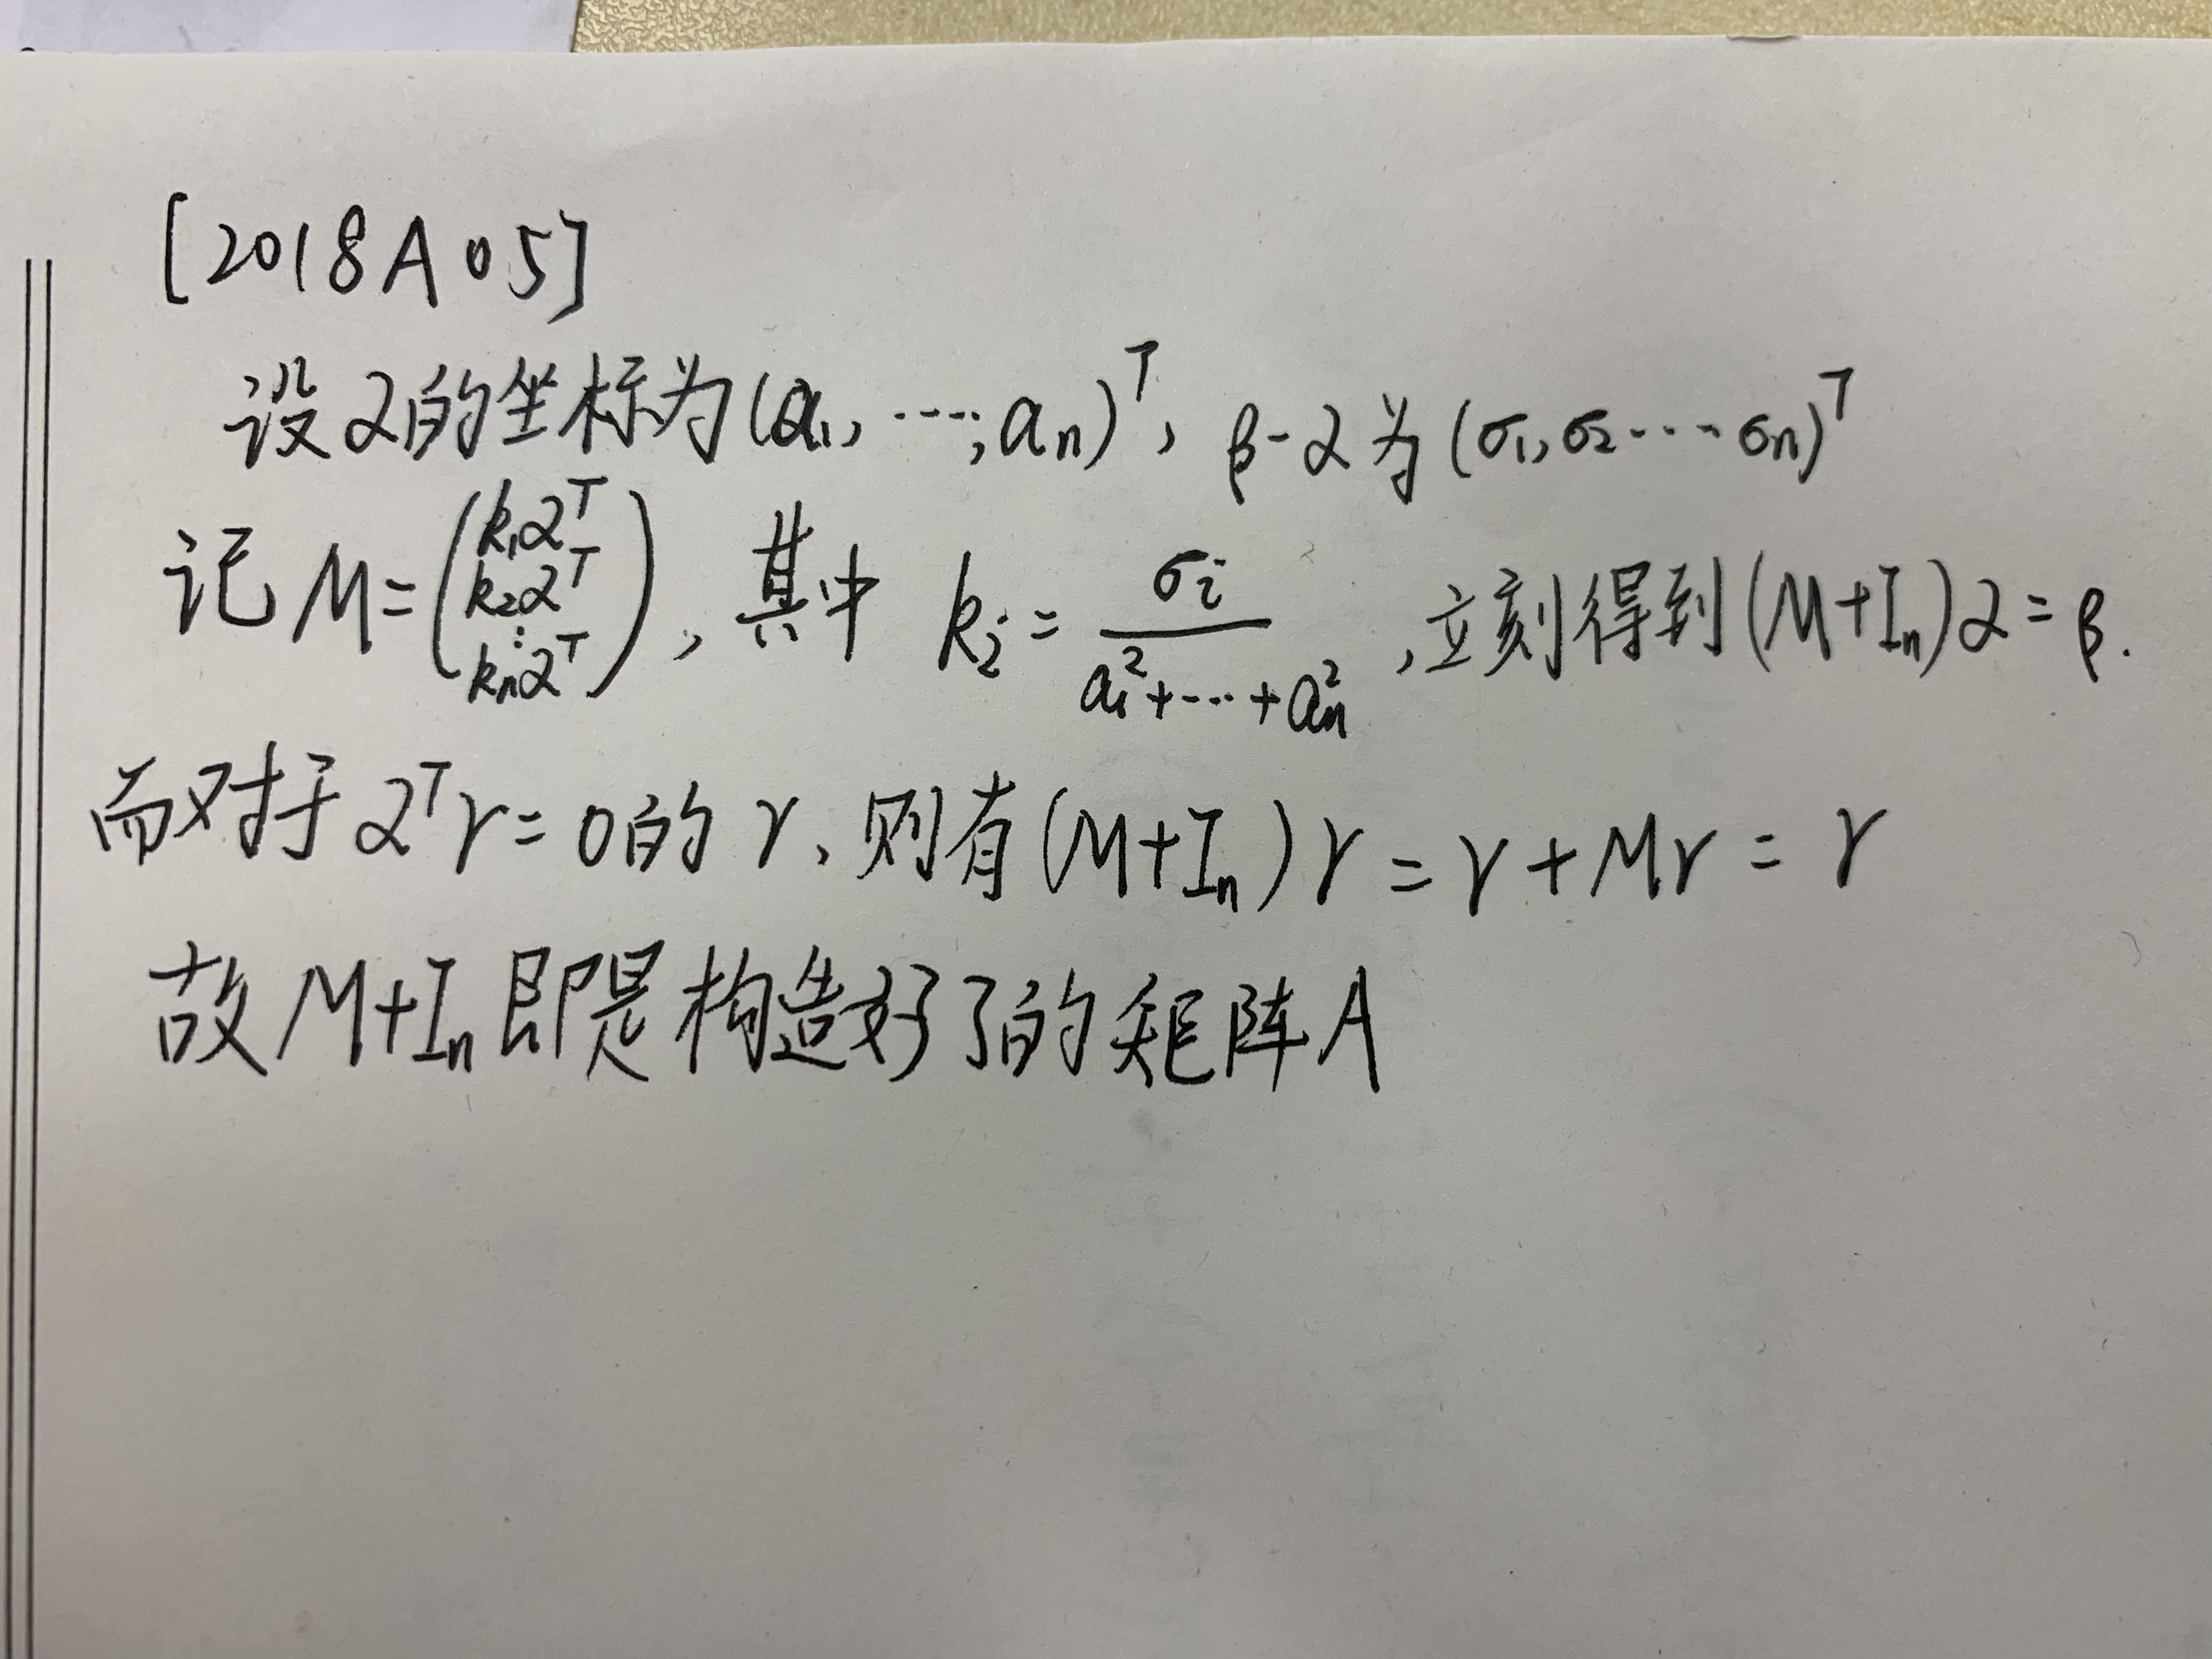 [2018A05]
设α的坐标为(a₁, ⋯, aₙ)ᵀ, β-α为(σ₁,σ₂⋯σₙ)ᵀ
记M=(k₁αᵀ k₂αᵀ ⋮ kₙαᵀ), 其中 kᵢ= σᵢ/(a₁²+⋯+aₙ²) ,立刻得到(M+Iₙ)α=β.
而对于αᵀγ=0的γ,则有(M+Iₙ)γ=γ+Mγ=γ
故M+Iₙ即是构造好了的矩阵A